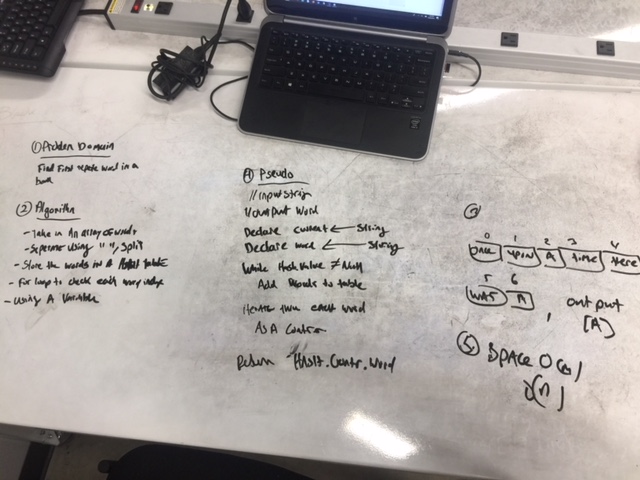 ① Problem Domain
Find First repeate word in a
book
② Algorithm
- Take in an array of words
- Seperate using " ", Split
- Store the words in A Hash table
- For loop to check each word
- Using A Variable
④ Pseudo
// Input string
// Output word
Declare current ← String
Declare word ← String
While Hash value ≠ Null
Add words to table
Iterate thru each word
As A
Return Hash.Contr.Word
0 1 2 3 4
once upon A time there
5 6
was A , output
[A]
⑤ SPACE O(n)